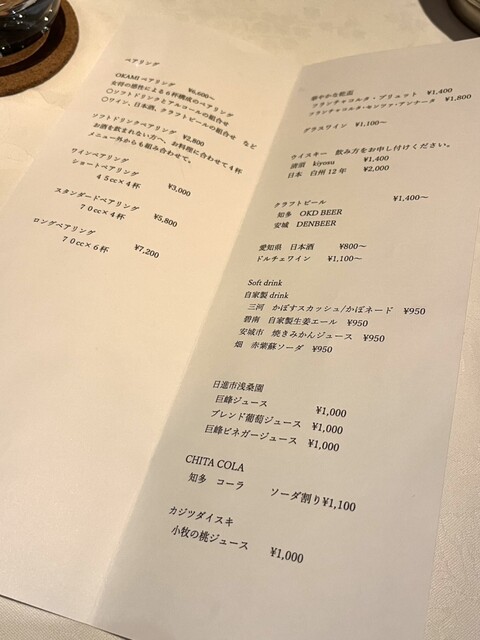 ペアリング
OKAMIペアリング ¥6,600～
女将の感性による6杯構成のペアリング
○ソフトドリンクとアルコールの組合せ
○ワイン、日本酒、クラフトビールの組合せ など
ソフトドリンクペアリング ¥2,800
お酒を飲まれない方へ、お料理に合わせて4杯
メニュー外からも組み合わせて。
ワインペアリング
ショートペアリング ¥3,000
45cc×4杯
スタンダードペアリング ¥5,800
70cc×4杯
ロングペアリング ¥7,200
70cc×6杯
華やかな乾盃
フランチャコルタ・ブリュット ¥1,400
フランチャコルタ・モンツァ・アンナータ ¥1,800
グラスワイン ¥1,100～
ウイスキー 飲み方をお申し付けください。
清須 kiyosu ¥1,400
日本 白州12年 ¥2,000
クラフトビール ¥1,400～
知多 OKD BEER
安城 DENBEER
愛知県 日本酒 ¥800～
ドルチェワイン ¥1,100～
Soft drink
自家製 drink
三河 かぼすスカッシュ/かぼネード ¥950
碧南 自家製生姜エール ¥950
安城市 焼きみかんジュース ¥950
畑 赤紫蘇ソーダ ¥950
日進市浅桑園
巨峰ジュース ¥1,000
ブレンド葡萄ジュース ¥1,000
巨峰ビネガージュース ¥1,000
CHITA COLA
知多 コーラ ソーダ割り¥1,100
カジツダイスキ
小牧の桃ジュース ¥1,000